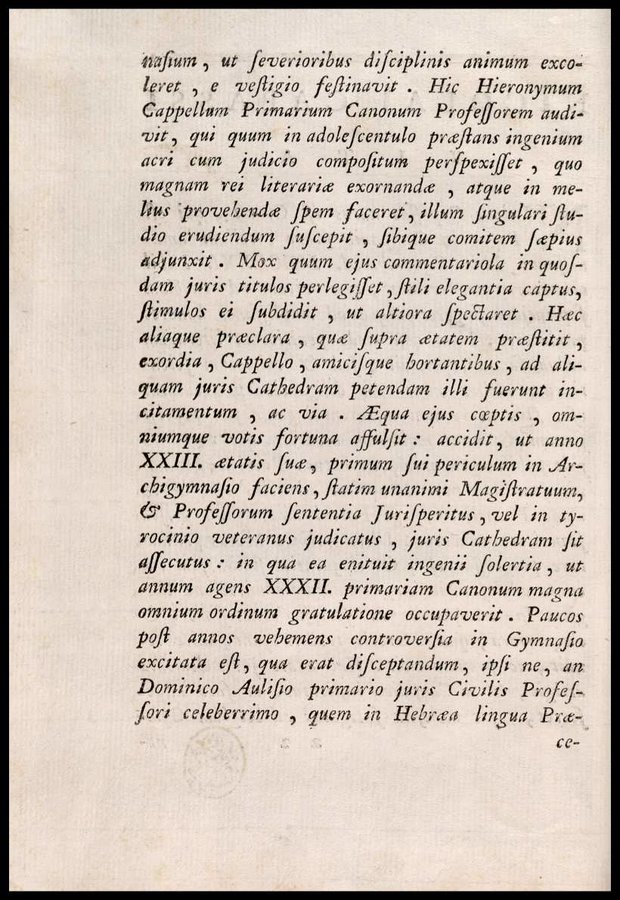 nasium, ut ſeverioribus diſciplinis animum exco-
leret, e veſtigio feſtinavit. Hic Hieronymum
Cappellum Primarium Canonum Profeſſorem audi-
vit, qui quum in adoleſcentulo præſtans ingenium
acri cum judicio compoſitum perſpexiſſet, quo
magnam rei literariæ exornandæ, atque in me-
lius provehendæ ſpem faceret, illum ſingulari ſtu-
dio erudiendum ſuſcepit, ſibique comitem ſæpius
adjunxit. Mox quum ejus commentariola in quoſ-
dam juris titulos perlegiſſet, ſtili elegantia captus,
ſtimulos ei ſubdidit, ut altiora ſpectaret. Hæc
aliaque præclara, quæ ſupra ætatem præſtitit,
exordia, Cappello, amiciſque hortantibus, ad ali-
quam juris Cathedram petendam illi fuerunt in-
citamentum, ac via. Æqua ejus cœptis, om-
niumque votis fortuna affulſit: accidit, ut anno
XXIII. ætatis ſuæ, primum ſui periculum in Ar-
chigymnaſio faciens, ſtatim unanimi Magiſtratuum,
& Profeſſorum ſententia Juriſperitus, vel in ty-
rocinio veteranus judicatus, juris Cathedram ſit
aſſecutus: in qua ea enituit ingenii ſolertia, ut
annum agens XXXII. primariam Canonum magna
omnium ordinum gratulatione occupaverit. Paucos
poſt annos vehemens controverſia in Gymnaſio
excitata eſt, qua erat diſceptandum, ipſi ne, an
Dominico Auliſio primario juris Civilis Profeſ-
ſori celeberrimo, quem in Hebræa lingua Præ-
ce-